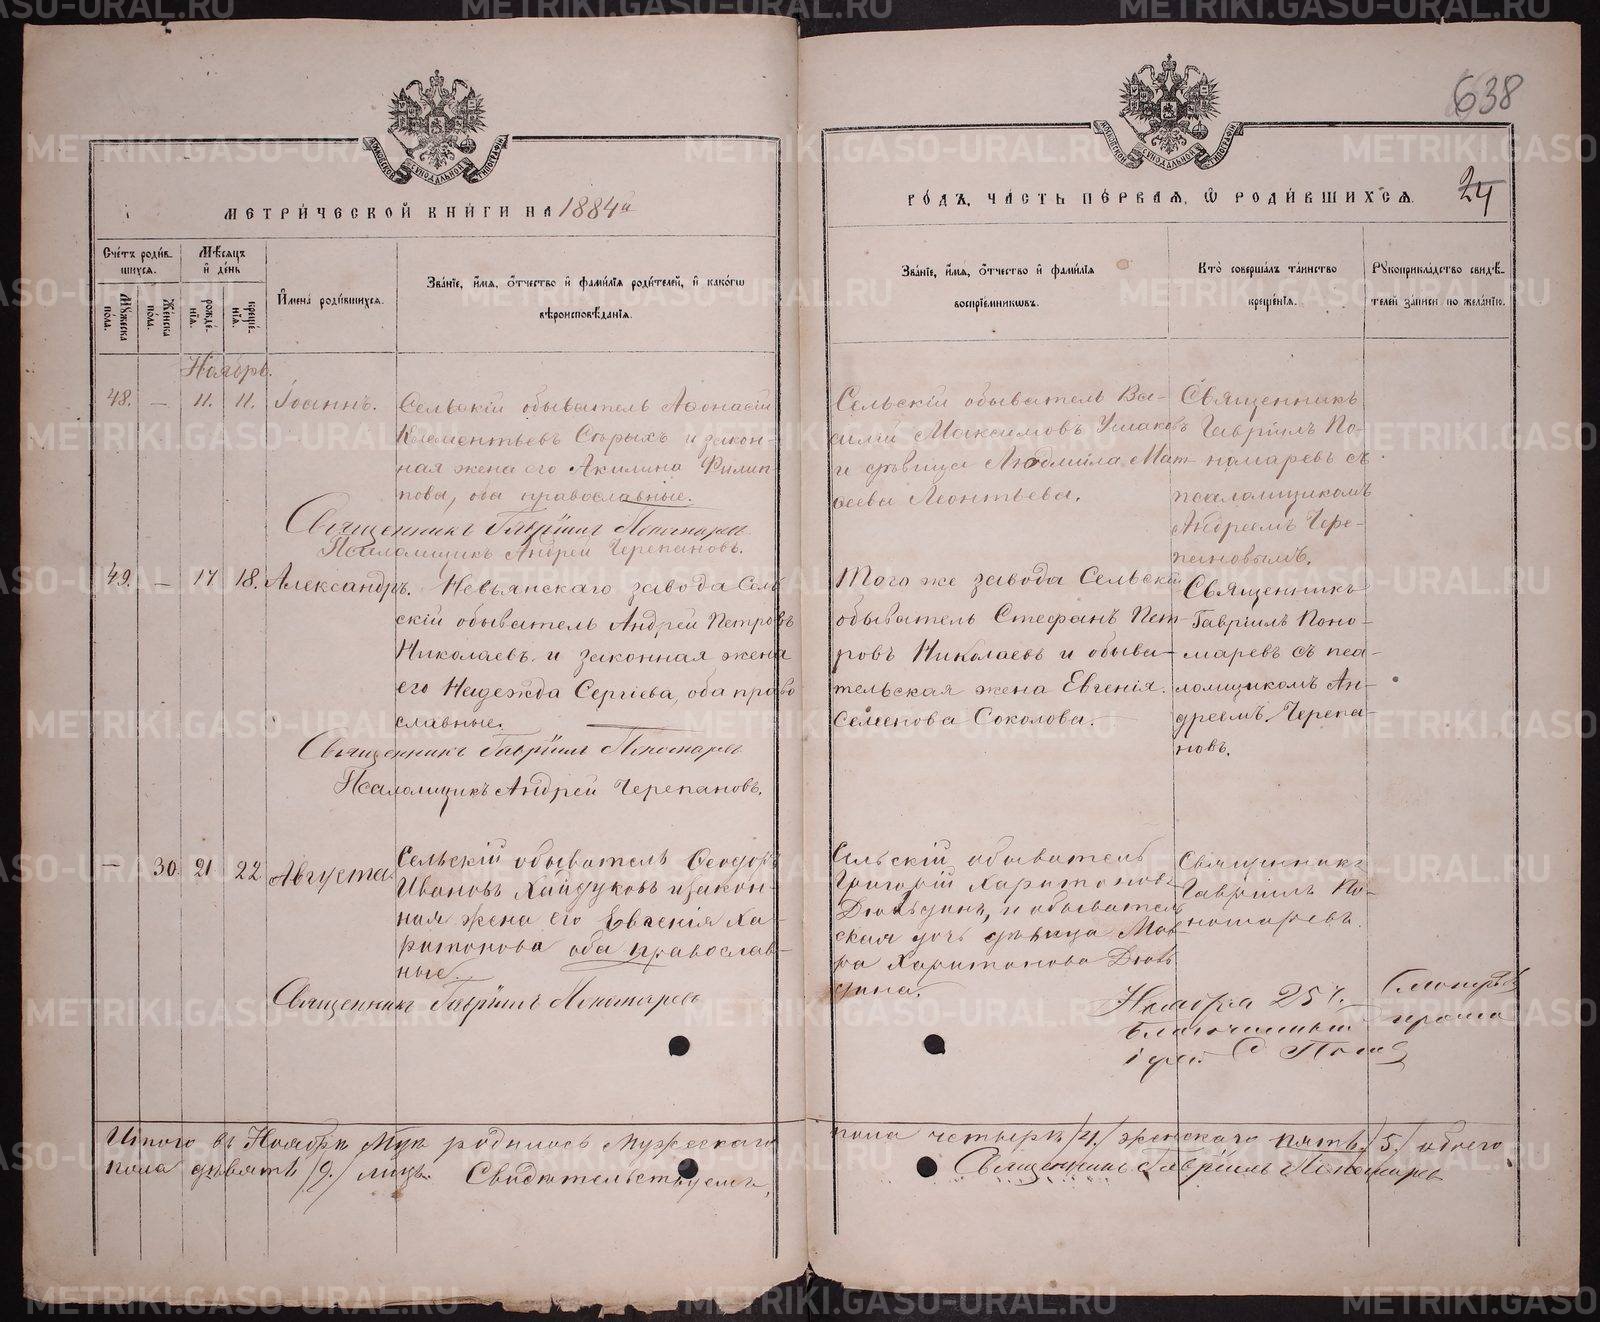 638
МОСКОВСКОЙ СѴНОДАЛЬНОЙ ТИПОГРАФІИ
МОСКОВСКОЙ СѴНОДАЛЬНОЙ ТИПОГРАФІИ
МЕТРИ́ЧЕСКОЙ КНИ́ГИ НА 1884й
РО́ДЪ, ЧА́СТЬ ПЕ́РВАѦ, Ѡ҆ РОДИ́ВШИХСѦ.
24
Сче́тъ роди́в-
шихсѧ.
Мꙋжеска по́ла.
Же́нска по́ла.
Мѣ́сѧцъ
и҆ де́нь
рожде́-
нїѧ.
креще́-
нїѧ.
И҆мена̀ роди́вшихсѧ.
Зва́нїе, и҆́мѧ, ѻ҆́тчество и҆ фами́лїѧ роди́телей, и҆ како́гѡ
вѣроисповѣ́данїѧ.
Зва́нїе, и҆́мѧ, ѻ҆́тчество и҆ фами́лїѧ
воспрїе́мникѡвъ.
Кто̀ соверша́лъ та́инство
креще́нїѧ.
Рꙋкоприкла́дство свидѣ́-
телей за́писи по жела́нїю.
Ноябрь.
48. — 11. 11. Іоаннъ.
Сельскій обыватель Аѳонасій
Клементьевъ Старыхъ и закон-
ная жена его Акилина Филип-
пова, оба православные.
Священникъ Гавріилъ Пономаревъ
Псаломщикъ Андрей Черепановъ.
Сельскій обыватель Ва-
силій Максимовъ Ушаковъ
и дѣвица Людмила Мат-
ѳеева Леонтьева.
Священникъ
Гавріилъ По-
номаревъ съ
псаломщикомъ
Андреемъ Чере-
пановымъ.
49. — 17 18. Александръ.
Невьянскаго завода Сель-
скій обыватель Андрей Петровъ
Николаевъ и законная жена
его Надежда Сергіева, оба право
славные.
Священникъ Гавріилъ Пономаревъ
Псаломщикъ Андрей Черепановъ.
Того же завода Сельскій
обыватель Стефанъ Пет-
ровъ Николаевъ и обыва-
тельская жена Евгенія
Семенова Соколова.
Священникъ
Гавріилъ Поно-
маревъ съ пса-
ломщикомъ Ан-
дреемъ Черепа-
новъ.
— 30. 21 22 Августа
Сельскій обыватель Ѳеодоръ
Ивановъ Хайдуковъ и закон-
ная жена его Евгенія Ха-
ритонова оба православ-
ные.
Священникъ Гавріилъ Пономаревъ
Сельскій обыватель
Григорій Харитоновъ
Дюльдинъ, и обыватель
ская дочь дѣвица Мав
ра Харитонова Дюль
дина.
Священникъ
Гавріилъ По-
номаревъ.
Ноября 25 ч.
Благочинный
Итого въ Ноябрѣ родилось Мужескаго
пола четыре /4/ женскаго пять /5/ обоего
пола девять /9/ лицъ. Свидѣтельствуемъ,
Священникъ Гавріилъ Пономаревъ
METRIKI.GASO-URAL.RU